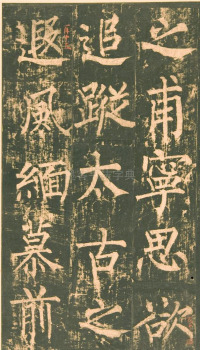 之甫寧思欲
追蹤大古之
遐風緬慕前